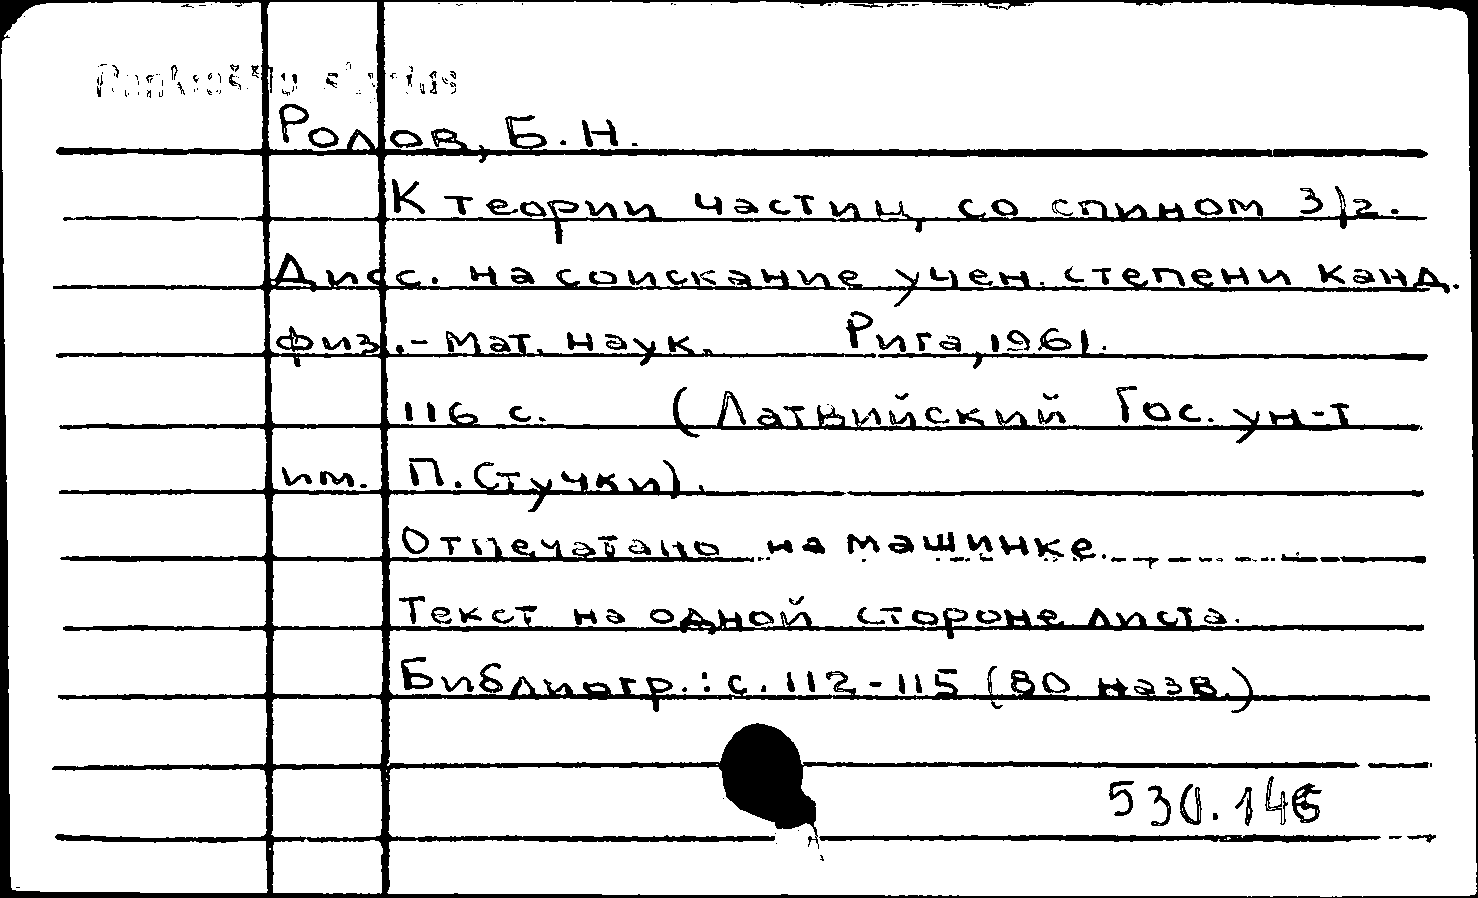 Rankraščių skyrius
Ролов, Б.Н.
К теории частиц со спином 3/2.
Дисс. на соискание учен. степени канд.
физ.-мат. наук. Рига, 1961.
116 с. (Латвийский Гос. ун-т
им. П. Стучки).
Отпечатано на машинке.
Текст на одной стороне листа.
Библиогр.: с. 112-115 (80 назв.)